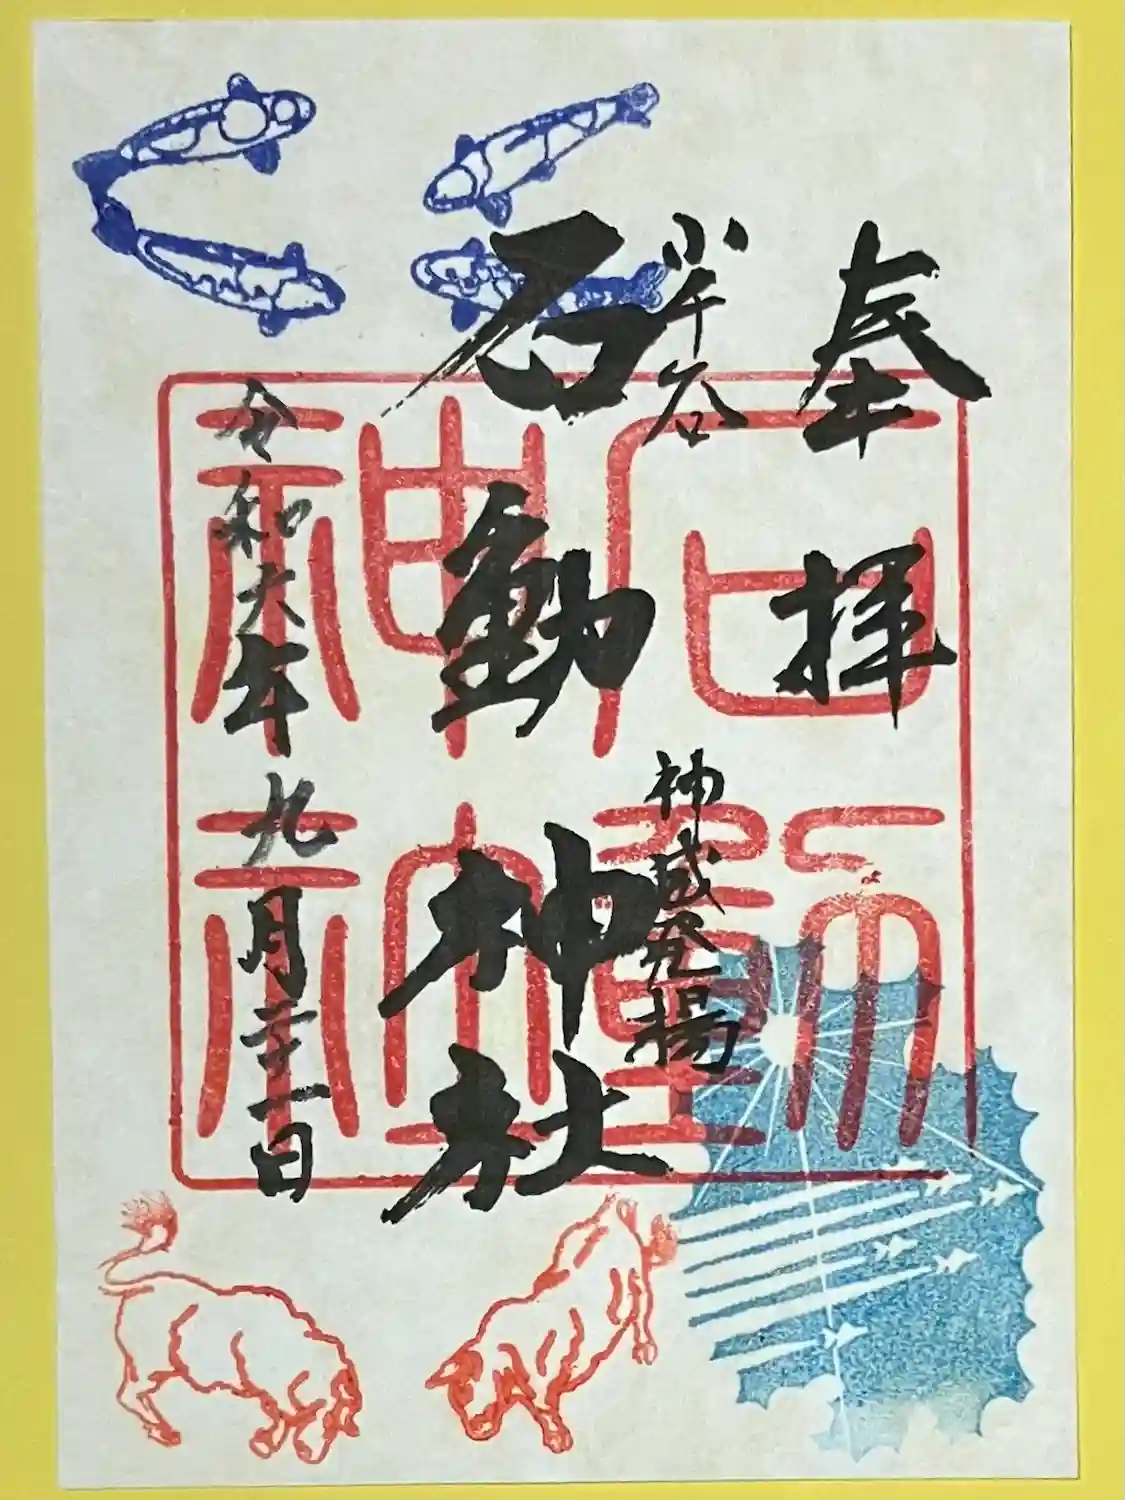 奉拝
小千谷
神威発揚
石動神社
令和六年九月二十一日
石動
神社